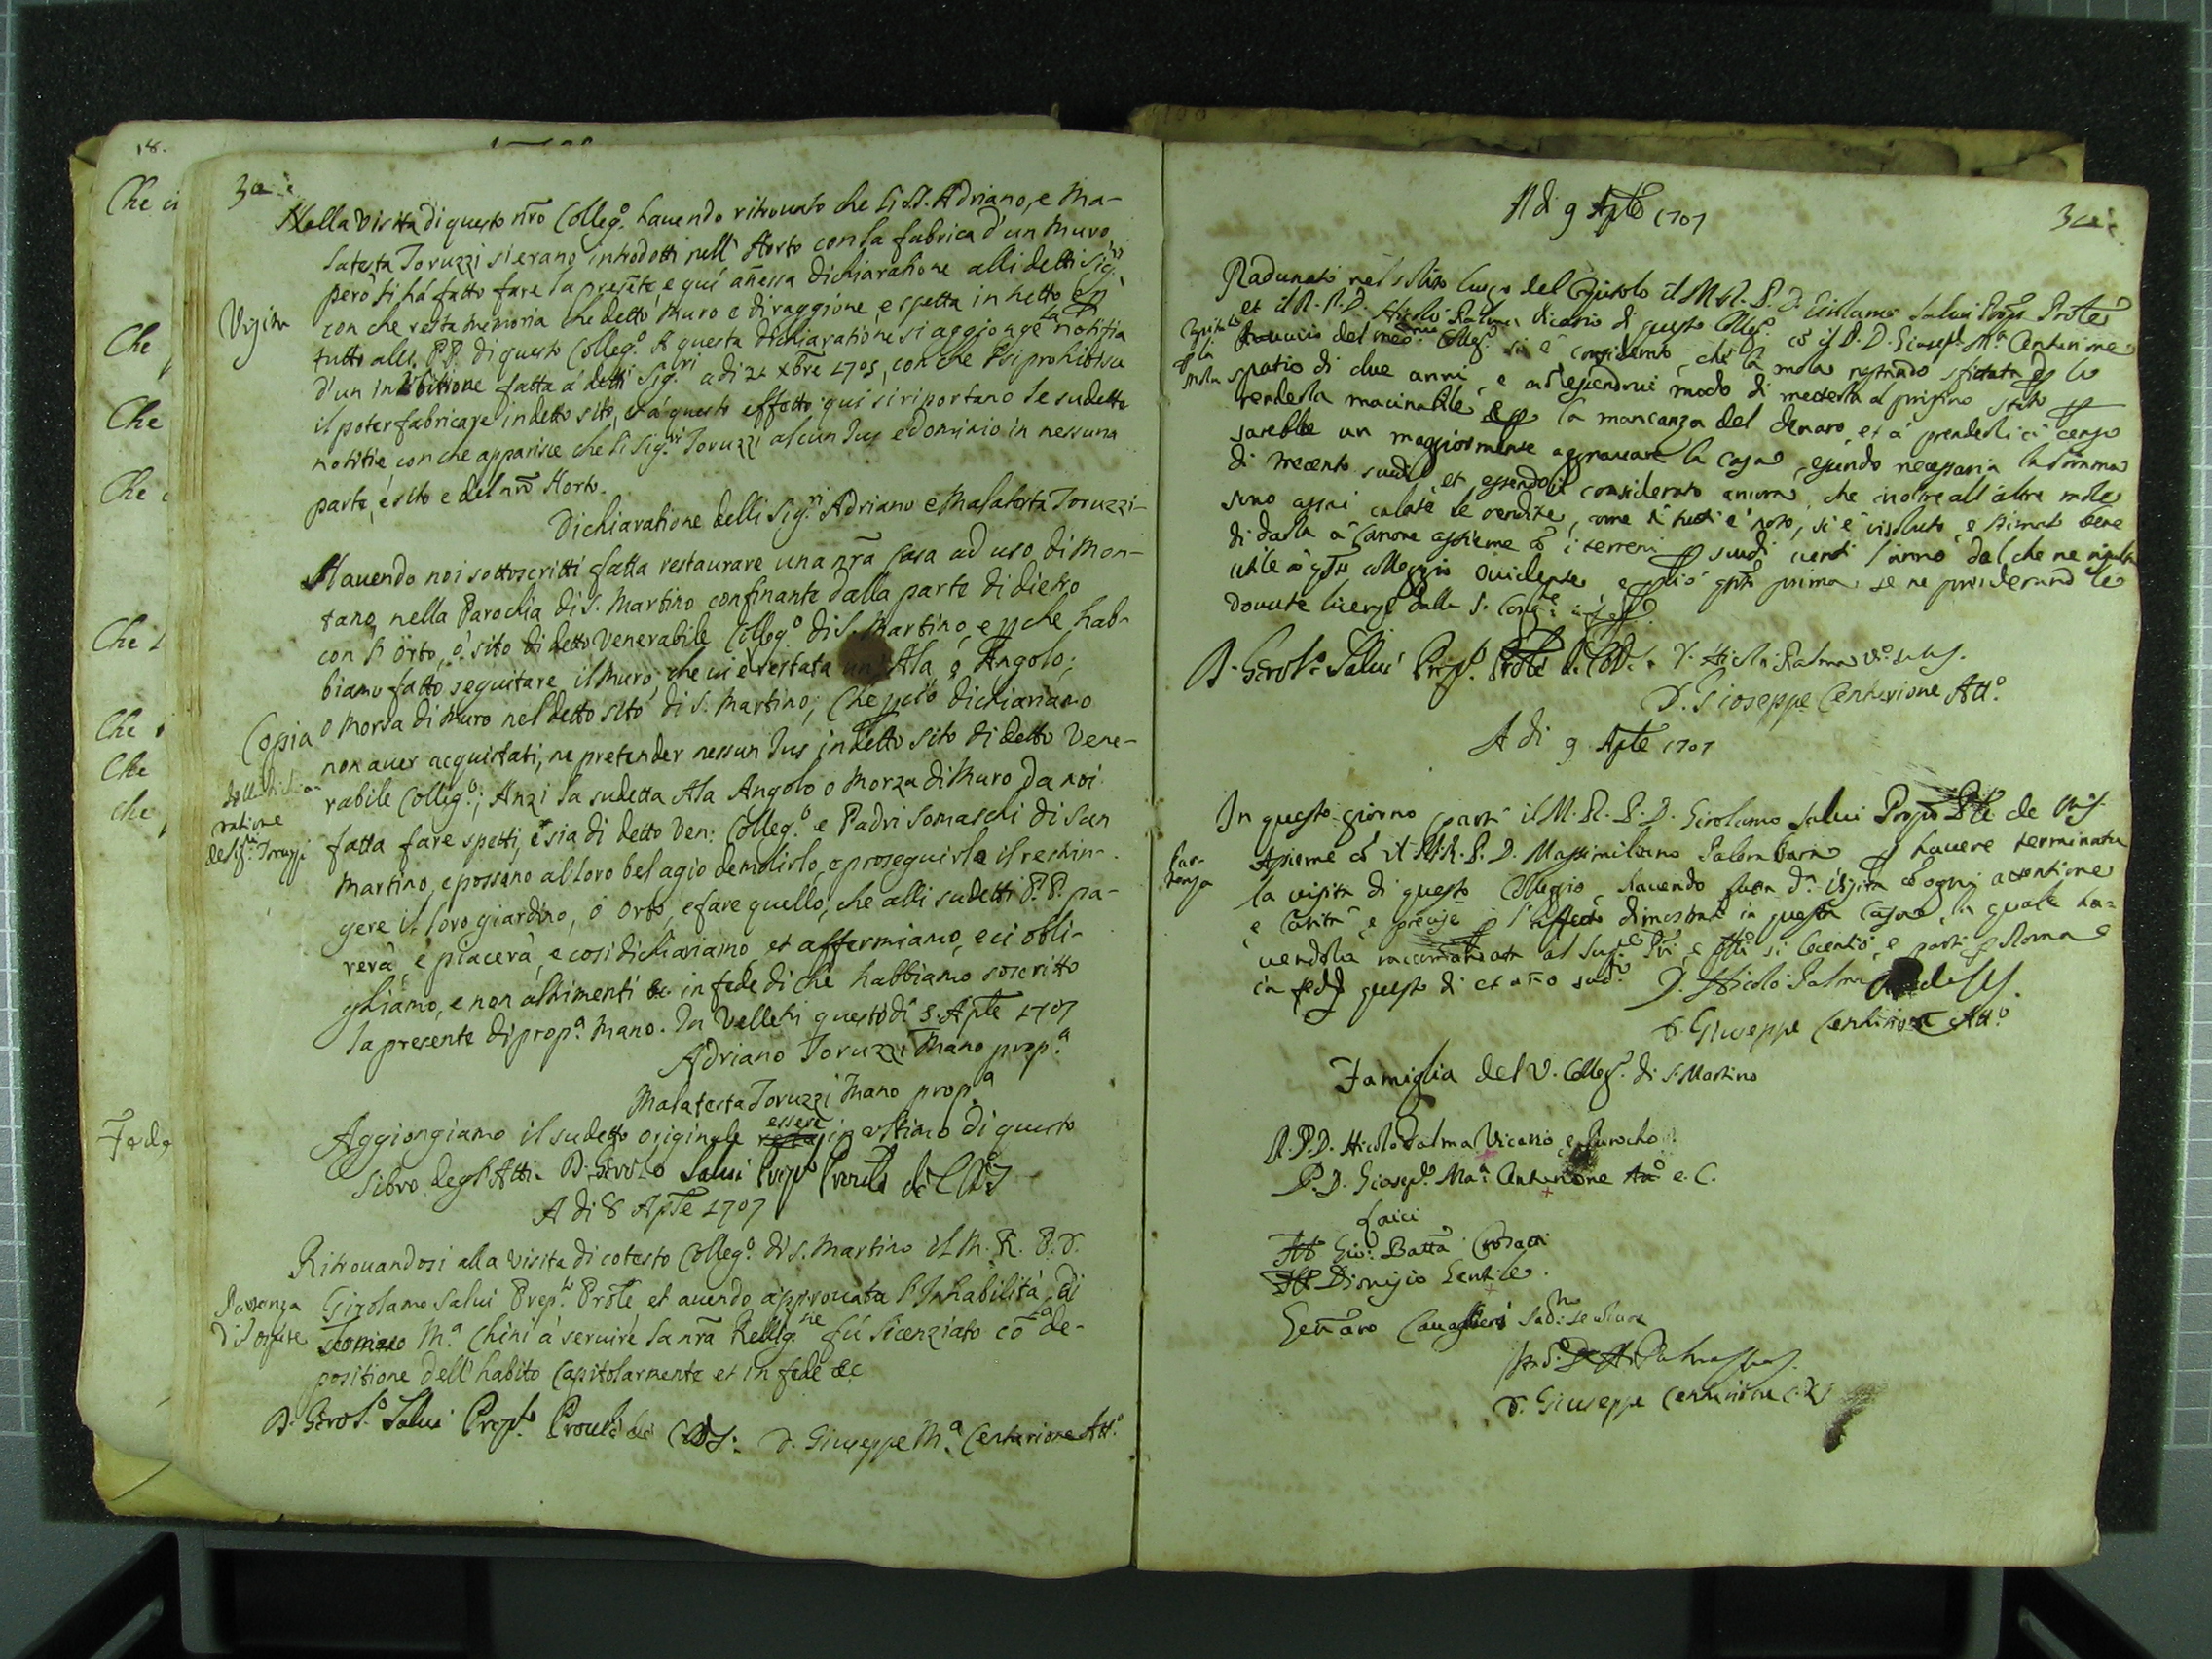 18.
Che
Che
Che
Che
Che
Che
Che
che
Fede
Nella Visita di questo nro Colleg.o hauendo ritrouato che li SS. Adriano, e Ma-
latesta Toruzzi si erano introdotti nell' Horto con la fabrica d'un muro,
però si há fatto fare la presete, e qui anessa dichiaratione alli detti Sig.ri
Visita
con che resta memoria che detto Muro e di raggione, e spetta in tutto e p
tutto alli PP. di questo Colleg.o A questa dichiaratione si aggionge la notitia
d'un inibitione fatta a detti Sig.ri a di 22 Xbre 1705, con che si prohibisce
il poter fabricare in detto sito, et á questo effetto qui si riportano le sudette
notitie con che apparisce che li Sig.ri Toruzzi alcun Jus e dominio in nessuna
parte, é sito e del nro Horto.
Dichiaratione delli Sig.ri Adriano e Malatesta Toruzzi-
Hauendo noi sottoscritti fatta restaurare una nra Casa ad uso di Mon-
tano nella Parochia di S. Martino confinante dalla parte di dietro
con l'Orto, ò sito di detto Venerabile Colleg.o di S. Martino, e p che hab-
biamo fatto seguitare il muro, che ui é restata un' Ala, ó Angolo;
Copia
o Morsa di Muro nel detto sito di S. Martino; Che p ciò dichiariamo
non auer acquistati, ne pretender nessun Jus in detto sito di detto Vene-
della Dichia-
ratione
de Sig.ri Toruzzi
rabile Colleg.o; Anzi la sudetta Ala Angolo o Morza di Muro da noi
fatta fare spetti, e sia di detto Ven: Colleg.o e Padri Somaschi di San
Martino, e possano al loro bel agio demolirlo, e proseguirlo il restin-
gere il loro giardino, ó Orto, e fare quello, che alli sudetti P.P. pa-
rerà, e piacerà, e cosi dichiariamo, et affermiamo, e ci obli-
ghiamo, e non altrimenti &c in fede di che habbiamo soscritto
la presente di prop.a mano. In Velletri questo di 5. Aple 1707
Adriano Toruzzi Mano prop.a
Malatesta Toruzzi mano prop.a
Aggiongiamo il sudetto originale essere in ultimo di questo
libro degl'Atti. D. Girol.o Salui Prep.to Proule
A di 8 Aple 1707
Ritrouandosi alla Visita di cotesto Colleg.o di S. Martino il M. R. P. D.
Partenza
Girolamo Salui Prep.to Prole et auendo approuata l'Inhabilità di
Tomaso M.a Chini á seruire la nra Relig.ne fú licenziato có la de-
positione dell' habito Capitolarmente et in fede &c
D. Girol.o Salui Prep.to Proule D. Giuseppe M.a Centurione Att.o
A di 9 Aple 1707
Radunato nel solito luogo del Capitolo il M. R. P. D. Girolamo Salui Prep.to Prole
et il R. P. D. Nicolò Palma Vicario di questo Colleg.o có il P. D. Giusep.e M.a Centurione
Capitolo
p la
Mola
del med.mo Colleg.o si è considerato, che la mola restando sfittata p lo
spatio di due anni, e non essendoui modo di metterla al pristino stato p
renderla macinabile p la mancanza del denaro, et á prenderli á censo
sarebbe un maggiormente aggrauare la Casa, essendo necessaria la somma
di trecento scudi, et essendosi considerato ancora, che inoltre all'altre mole
sono assai calate le rendite, come á tutti é noto, si é risoluto, e stimato bene
di darla á Canone assieme có i terreni p scudi uenti l'anno dal che ne risulta
utile á qsto collegio euidente, e p ciò qto prima se ne prenderano le
douute licenze dalla S. Cong.ne
D. Girol.o Salui Prep.to Prole D. Nicolò Palma
D. Gioseppe Centurione Att.o
A di 9 Aple 1707
In questo giorno partì il M. R. P. D. Girolamo Salui Prep.to
Par-
tenza
Assieme có il M.R. P. D. Massimiliano Palombara p hauere terminata
la visita di questo Collegio, hauendo fatta d.a Visita có ogni attentione
e Carità, e precise p l'affetto dimostrato in questa Casa, la quale ha-
uendola raccomandata al Sup.re si licentiò, e partì p Roma e
in fede questo di et año sud.o D. Nicolò Palma
D. Giuseppe Centurione Att.o
Famiglia del V. Colleg.o di S. Martino
R. P. D. Nicolo Palma Vicario, e Parocho
P. D. Giosep.e Ma.a Centurione Att.o e C.
Laici
Gio: Batta
Dionigio Gentile
Genaro Caualieri
D. Giuseppe Centurione